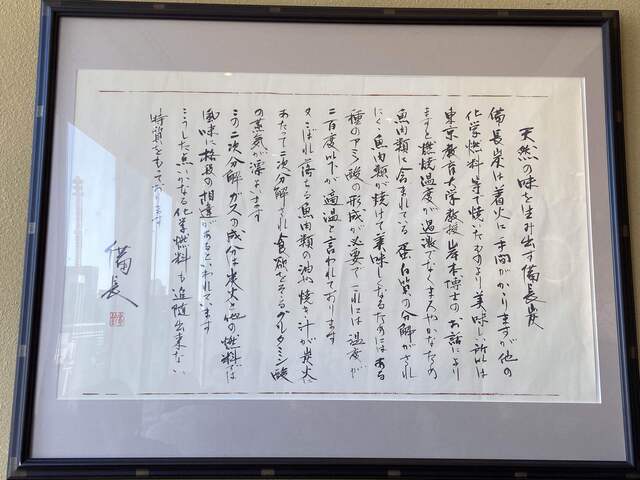 天然の味を生み出す備長炭
備長炭は着火に手間がかりますが他の
化学燃料等で焼いたものより美味しい所以は
東京教育大学教授岸本博士のお話により
ますと燃焼温度が過激でなくまろやかなため
魚肉類に含まれている蛋白質の分解がされ
にくく魚肉類が焼けて美味しくなるためにはある
種のアミノ酸の形成が必要でこれには温度が
二百度以下が適温と言われております
又こぼれ落ちる魚肉類の油や焼き汁が炭火に
あたって二次分解され食欲をそそるグルタミン酸
の蒸気が漂よいます
この二次分解ガスの成分は炭火と他の燃料では
風味に格段の相違があるといわれています
こうした点いかなる化学燃料も追随出来ない
特質をもっております
備長